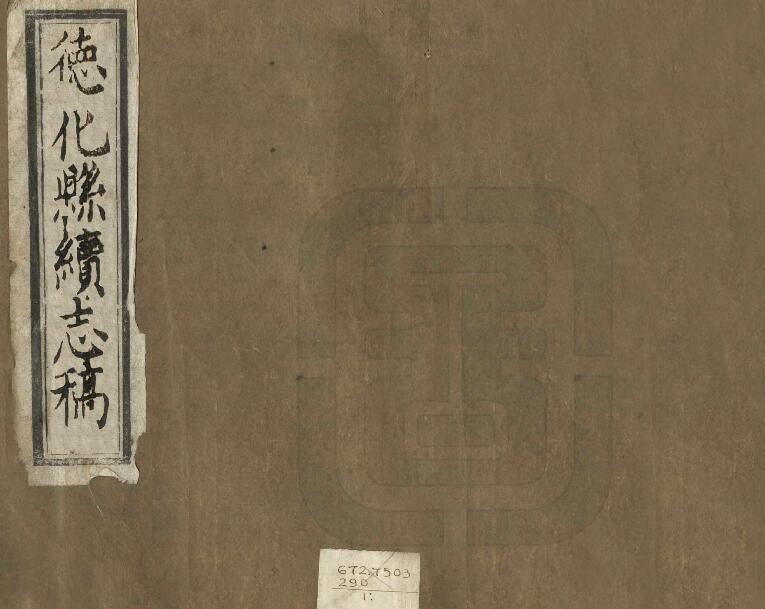 德化縣續志稿
672.7503
290
1: